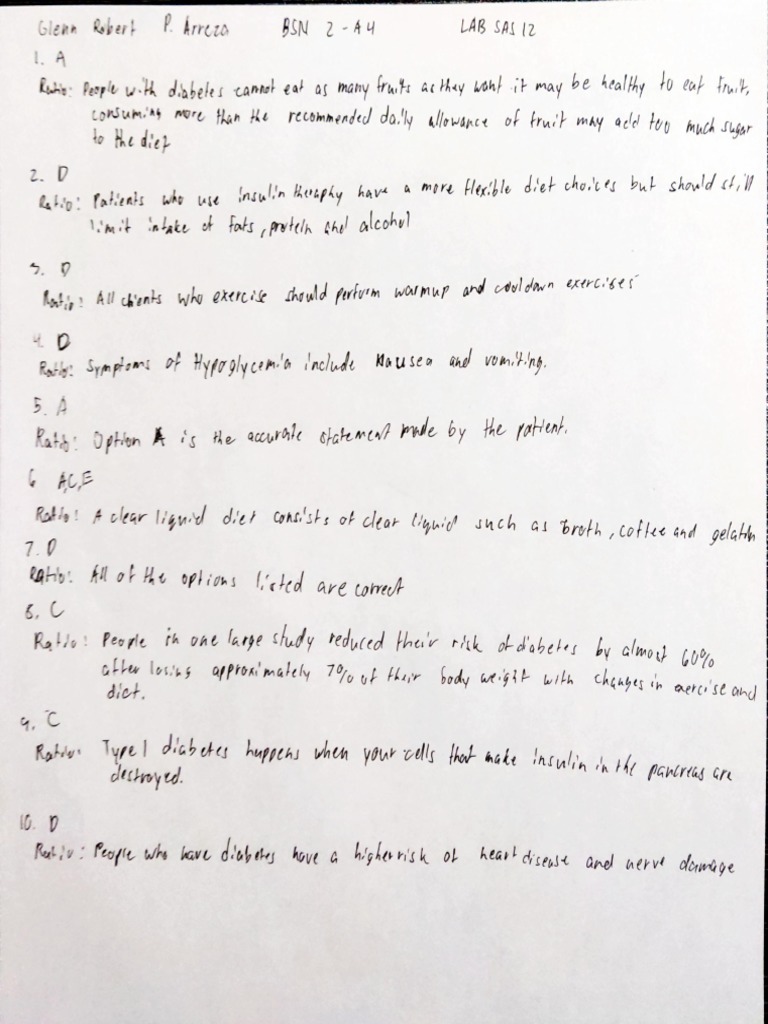 Glenn Robert P. Arreza BSN 2-A4 LAB SAS 12
1. A
Ratio: People with diabetes cannot eat as many fruits as they want it may be healthy to eat fruit,
consuming more than the recommended daily allowance of fruit may add too much sugar
to the diet
2. D
Ratio: Patients who use insulin theraphy have a more flexible diet choices but should still
limit intake of fats, protein and alcohol
3. D
Ratio: All clients who exercise should perform warmup and cooldown exercises
4. D
Ratio: Symptoms of Hypoglycemia include Nausea and vomiting.
5. A
Ratio: Option A is the accurate statement made by the patient.
6 A,C,E
Ratio: A clear liquid diet consists of clear liquid such as broth, coffee and gelatin
7. D
Ratio: All of the options listed are correct
8. C
Ratio: People in one large study reduced their risk of diabetes by almost 60%
after losing approximately 7% of their body weight with changes in exercise and
diet.
9. C
Ratio: Type 1 diabetes happens when your cells that make insulin in the pancreas are
destroyed.
10. D
Ratio: People who have diabetes have a higher risk of heart disease and nerve damage